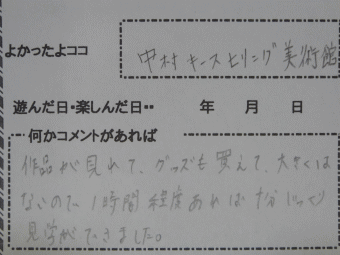 よかったよココ
中村キースヒリング美術館
遊んだ日・楽しんだ日・・ 年 月 日
何かコメントがあれば
作品が見れて、グッズも買えて、大きくは
ないので1時間程度あれば
見学ができました。